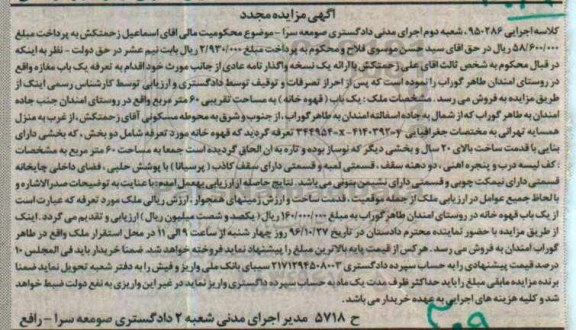 آگهی مزایده مجدد
کلاسه اجرایی ۹۵۰۲۸۶، شعبه دوم اجرای مدنی دادگستری صومعه سرا - موضوع محکومیت مالی آقای اسماعیل زحمتکش به پرداخت مبلغ
۵۸/۶۰۰/۰۰۰ ریال در حق آقای سید حسن موسوی فلاح و محکوم به پرداخت مبلغ ۲/۹۳۰/۰۰۰ ریال بابت نیم عشر در حق دولت - نظر به اینکه
در قبال محکوم به شخص ثالث آقای علی زحمتکش با ارائه یک نسخه واگذار نامه عادی از جانب مورث خود اقدام به تعرفه یک باب مغازه واقع
در روستای امندان طاهر گوراب را نموده است که پس از احراز تصرفات و توقیف توسط دادگستری و ارزیابی توسط کارشناس رسمی اینک از
طریق مزایده به فروش می رسد. مشخصات ملک: یک باب (قهوه خانه) به مساحت تقریبی ۶۰ متر مربع واقع در روستای امندان جنب جاده
امندان به طاهر گوراب که از شمال به جاده اسفالته امندان به طاهر گوراب، از جنوب و شرق به محوطه مسکونی آقای زحمتکش، از غرب به منزل
همسایه تهرانی به مختصات جغرافیایی ۴۱۴۰۳۹۳-y ۳۴۴۹۵۴۰-x تعرفه گردید که قهوه خانه مورد تعرفه شامل دو بخش، که بخشی دارای
بنایی با قدمت ساخت بالای ۲۰ سال و بخشی دیگر که نوساز بوده و تازه به آن الحاق گردیده است جمعا به مساحت ۶۰ متر مربع به مشخصات
: کف لیسه درب و پنجره اهنی، دو دهنه سقف، قسمتی لمبه و قسمتی دارای سقف کاذب (پرسیانا) با پوشش حلبی، فضای داخلی چایخانه
قسمتی دارای نیمکت چوبی و قسمتی دارای نشیمن بتونی می باشد. نتایج حاصله از ارزیابی بهعمل آمده با عنایت به توضیحات صدرالاشاره و
با لحاظ جمیع عوامل در ارزیابی ملک از جمله موقعیت، قدمت ساخت و ارزش زمینهای همجوار، ارزش ریالی ملک مورد تعرفه که عبارت است
از یک باب قهوه خانه در روستای امندان طاهر گوراب به مبلغ ۱۶۰/۰۰۰/۰۰۰ ریال (یکصد و شصت میلیون ریال) ارزیابی و تقدیم می گردد. اینک
از طریق مزایده با حضور نماینده محترم دادستان در تاریخ ۹۶/۱۰/۲۷ روز چهار شنبه از ساعت ۹ الی ۱۱ در محل استقرار ملک واقع در طاهر
گوراب امندان به فروش می رسد. هر کس از قیمت پایه بالاترین مبلغ را پیشنهاد نماید فروخته خواهد شد. ضمنا خریدار باید فی المجلس ۱۰
درصد قیمت پیشنهادی را به حساب سپرده دادگستری ۲۱۷۱۲۹۴۵۰۸۰۰۳ سیبای بانک ملی واریز و فیش را به دفتر شعبه تحویل نماید ضمنا
برنده مزایده مابقی مبلغ را باید حداکثر ظرف مدت یک ماه به حساب سپرده دادگستری واریز نماید در غیر این واریزی به نفع دولت ضبط خواهد
شد و کلیه هزینه های اجرایی به عهده خریدار می باشد.
ح ۵۷۱۸ مدیر اجرای مدنی شعبه ۲ دادگستری صومعه سرا - رافع